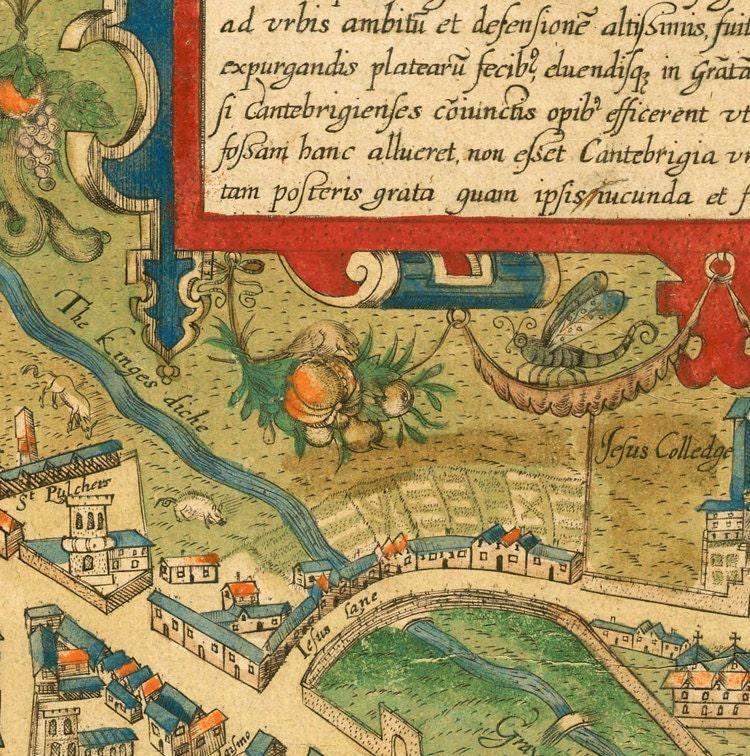 ad vrbis ambitū et defensionē altissimis, fuit
expurgandis platearū fecibꝯ, eluendisqꝫ in Grāta
si Cantebrigienses cōiunctis opibꝯ efficerent vt
fossam hanc allueret, non esset Cantebrigia
tam posteris grata quam ipsis iucunda et
The kinges diche
Jesus Colledge
St Pulchers
Jesus lane
Gra